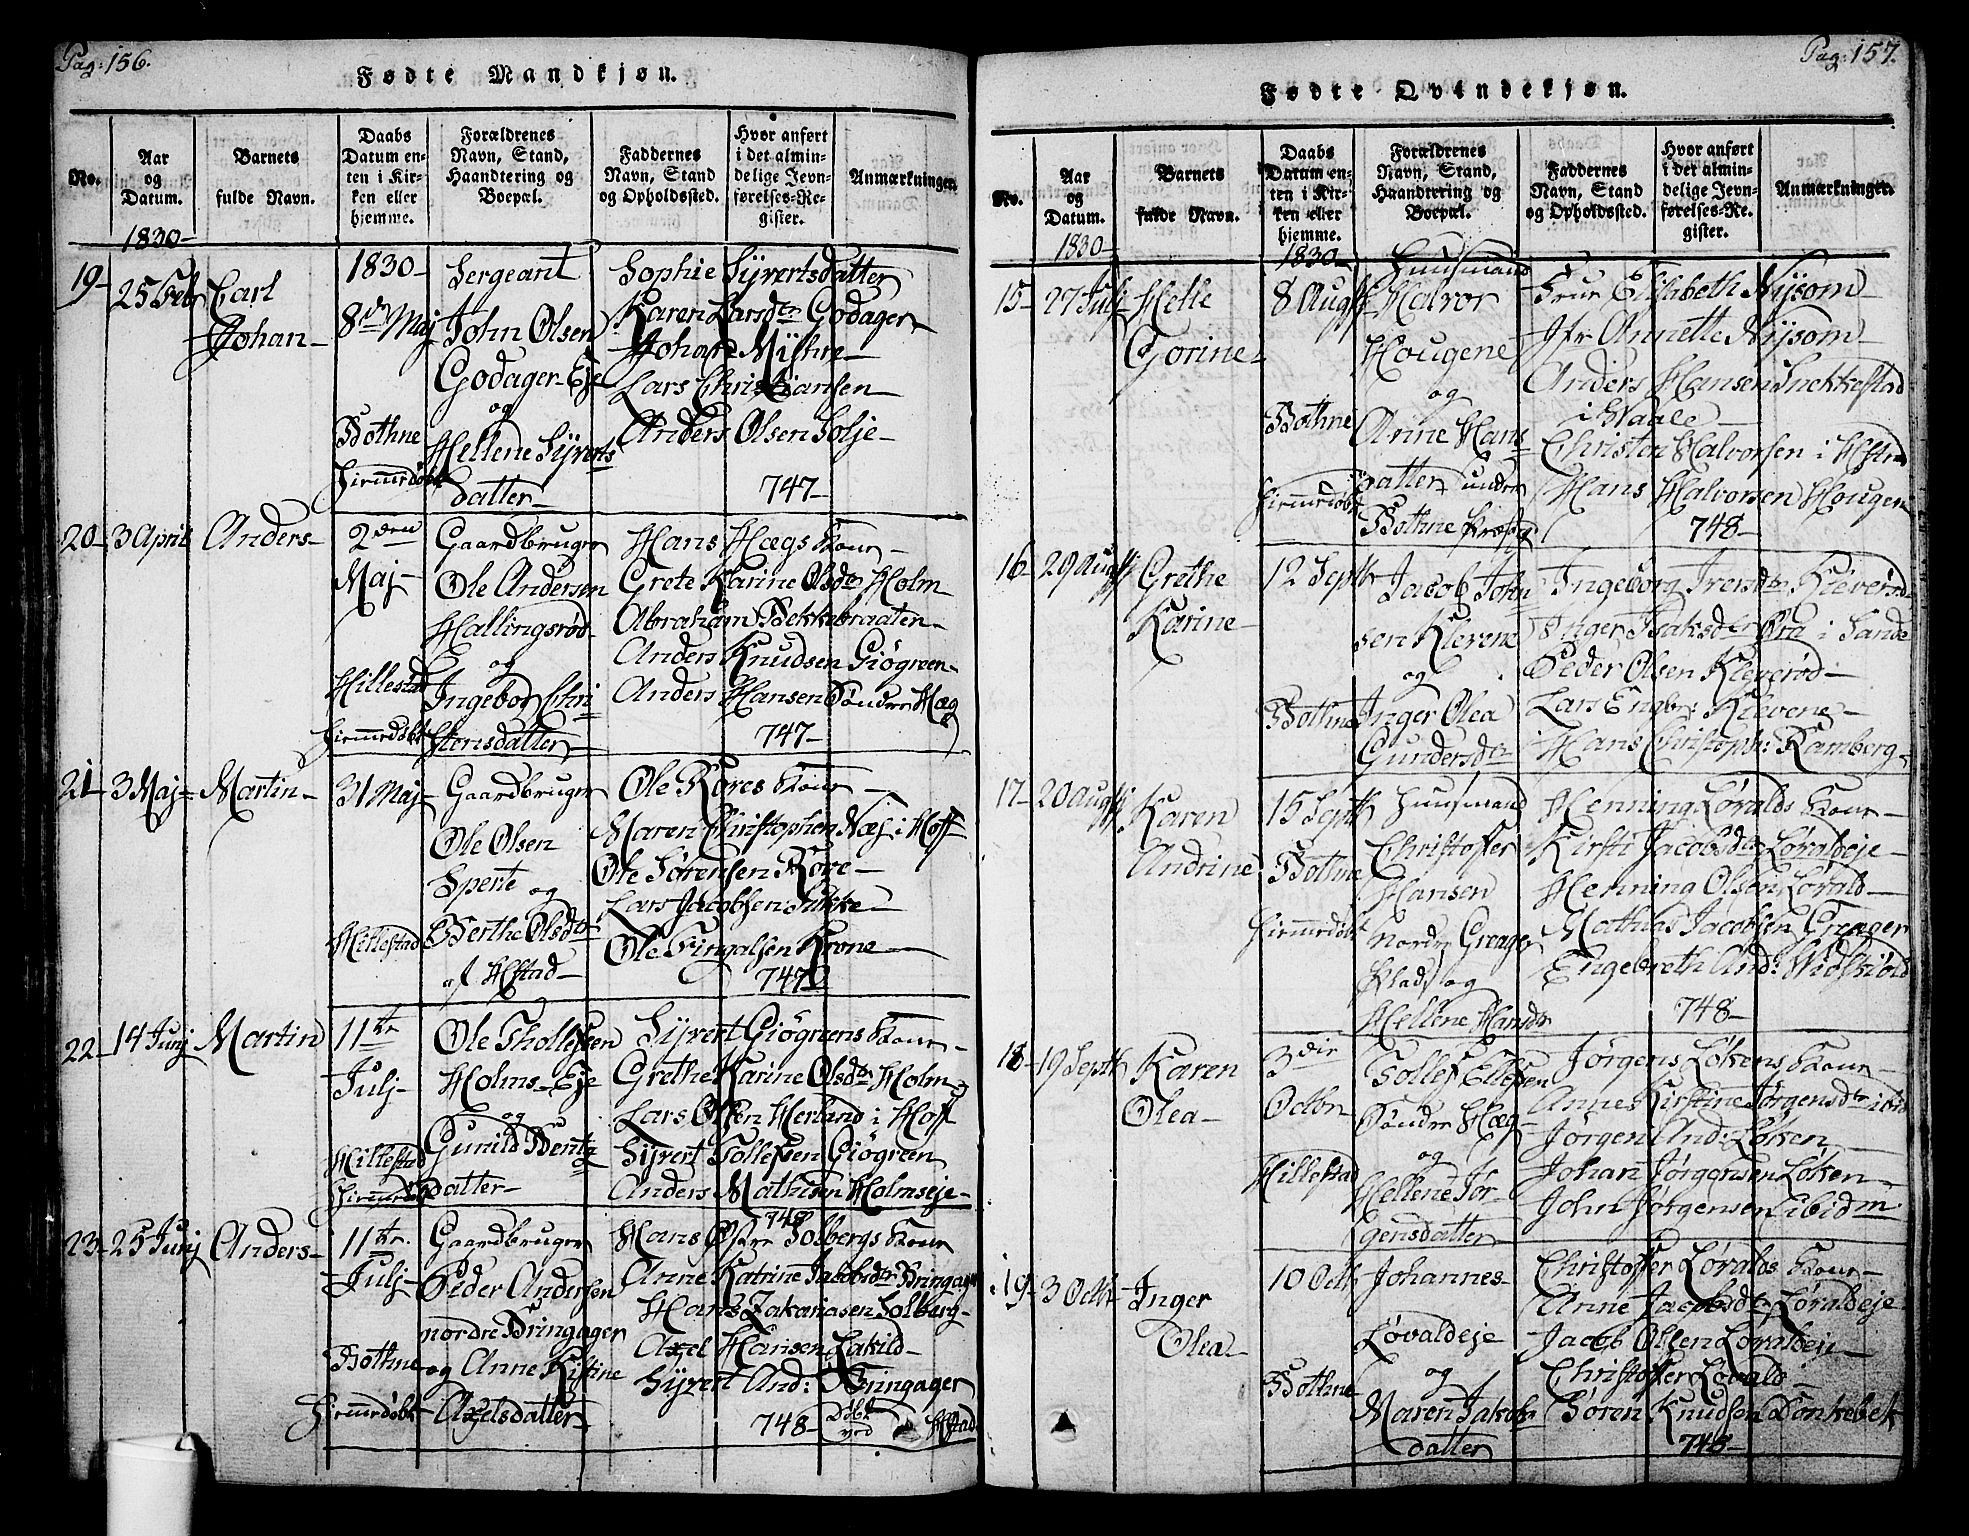 Pag: 156.
Fødte Mandkjøn.
No.
Aar og Datum.
Barnets fulde Navn.
Daabs Datum enten i Kirken eller hjemme.
Forældrenes Navn, Stand, Haandtering og Boepæl.
Faddernes Navn, Stand og Opholdssted.
Hvor anført i det almindelige Jevnførelses-Register.
Anmærkninger.
1830-
19-
25 Febr
Carl
Johan-
1830-
8de Maj
Bothne
Hiemmedøbt
Sergeant
John Olsen
Godager-Eje
og
Hellene Sÿverts
datter-
Sophie Sÿvertsdatter
Karen Larsdtr Godager
Johan Mÿhre-
Lars Christiansen-
Anders Olsen Solje-
747-
20-
3 April
Anders-
2den
Maj-
Hillestad
Hiemmedøbt
Gaardbruger
Ole Andersen
Hallingsrød-
og
Ingebor Chri
stensdatter-
Hans Hægs Kone-
Grete Karine Olsdtr Holm
Abraham Bekkebraaten-
Anders Knudsen Giøgreen-
Anders Hansen Søndre Hæg
747-
21-
3 Maj-
Martin-
31 Maj-
Hillestad
Gaardbruger
Ole Olsen
Spente
og
Berthe Olsdtr
af Hstad-
Ole Røres Kone-
Maren Christophen Næs i Hoff
Ole Sørensen Røre-
Lars Jacobsen Sukke-
Ole Fingalsen Krone-
747
22-
14 Junj
Martin
11te
Julj-
Hillestad
Hiemmedøbt
Ole Thollefsen
Holms-Eje
og
Gunild Bentz
datter-
Sÿvert Giøgreens Kone-
Grethe Karine Olsdtr Holm
Lars Olsen Herland i Hoff
Sÿvert Tollefsen Giøgreen
Anders Mathisen Holmseje-
748
23-
25 Junj
Anders-
11te.
Julj-
Bothne
Hiemmedøbt
Gaardbruger
Peder Andersen
nordre Bringager
og Anne Kistine
Axelsdatter-
Hans Østre Solbergs Kone
Anne Katrine Jacobsdtr Bringager
Hans Zakariasen Solberg-
Axel Hansen Lakild-
Sÿvert And: Bringager
748-
Døbt
ved
Hstad
Pag: 157.
Fødte Qvindekjøn.
No.
Aar og Datum.
Barnets fulde Navn.
Daabs Datum enten i Kirken eller hjemme.
Forældrenes Navn, Stand, Haandtering og Boepæl.
Faddernes Navn, Stand og Opholdssted.
Hvor anført i det almindelige Jevnførelses-Re. gister.
Anmærkninger.
1830-
1830-
15-
27 Julj
Helle
Gorine-
8 Augst
Bothne
Hiemmedøbt
Huusmand
Halvor
Hougene
og
Anne Hans
datter under
Bothne Præstg
Frue Elisabeth Nÿsom-
Jfr Annette Nÿsom-
Anders Hansen Snekkestad
i Waale-
Christen Halvorsen i Hstra
Hans Halvorsen Hougen
748-
16-
29 Augst
Grethe
Karine-
12 Septbr
Bothne
Jacob John
sen Klevene
og
Inger Olea
Gundersdtr
Ingeborg Iversdtr Kleverød-
Inger Isaksdtr Øra i Sande
Peder Olsen Kleverød-
Lars Engbr: Klevene-
Hans Christoph: Ramberg-
17-
20 Augst
Karen
Andrine
15 Septbr
Bothne
Hiemmedøbt
Huusmand
Christoffer
Hansen
nordre Greager
Plads og
Hellene Hansdtr
Henning Løvalds Kone-
Kirsti Jacobsdtr Løvaldeje-
Henning Olsen Løvald-
Mathias Jacobsen Greager
Engebreth And: Hvidskiold
748-
18-
19 Septbr
Karen
Olea-
3die
Octbr
Hillestad
Tollef Ellefsen
Søndre Hæg-
og
Hellene Jør
gensdatter
Jørgens Løkens Kone-
Anne Kirstine Jørgensdtr ibid
Jørgen And: Løken
Johan Jørgensen Løken-
John Jørgensen ibidm
19-
3 Octbr
Inger
Olea-
10 Octbr
Bothne
Johannes-
Løvaldeje
og
Maren Jakobs
datter
Christoffer Løvalds Kone-
Anne Jacobsdtr Løvaldeje
Jacob Olsen Løvaldeje-
Christoffer Løvald-
Søren Knudsen Dønkebek
748-